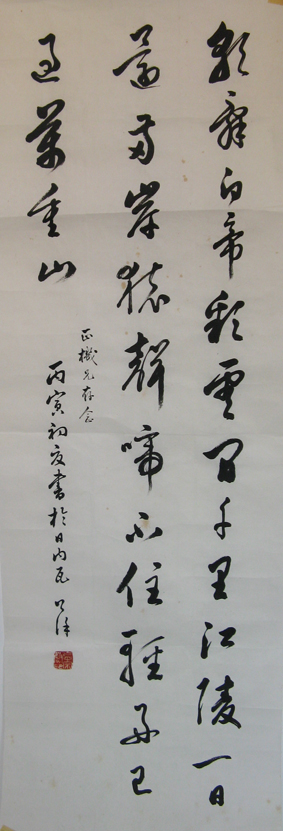 朝辭白帝彩雲間千里江陵一日
還兩岸猿聲啼不住輕舟已
過萬重山
正機兄存念
丙寅初夏書於日內瓦